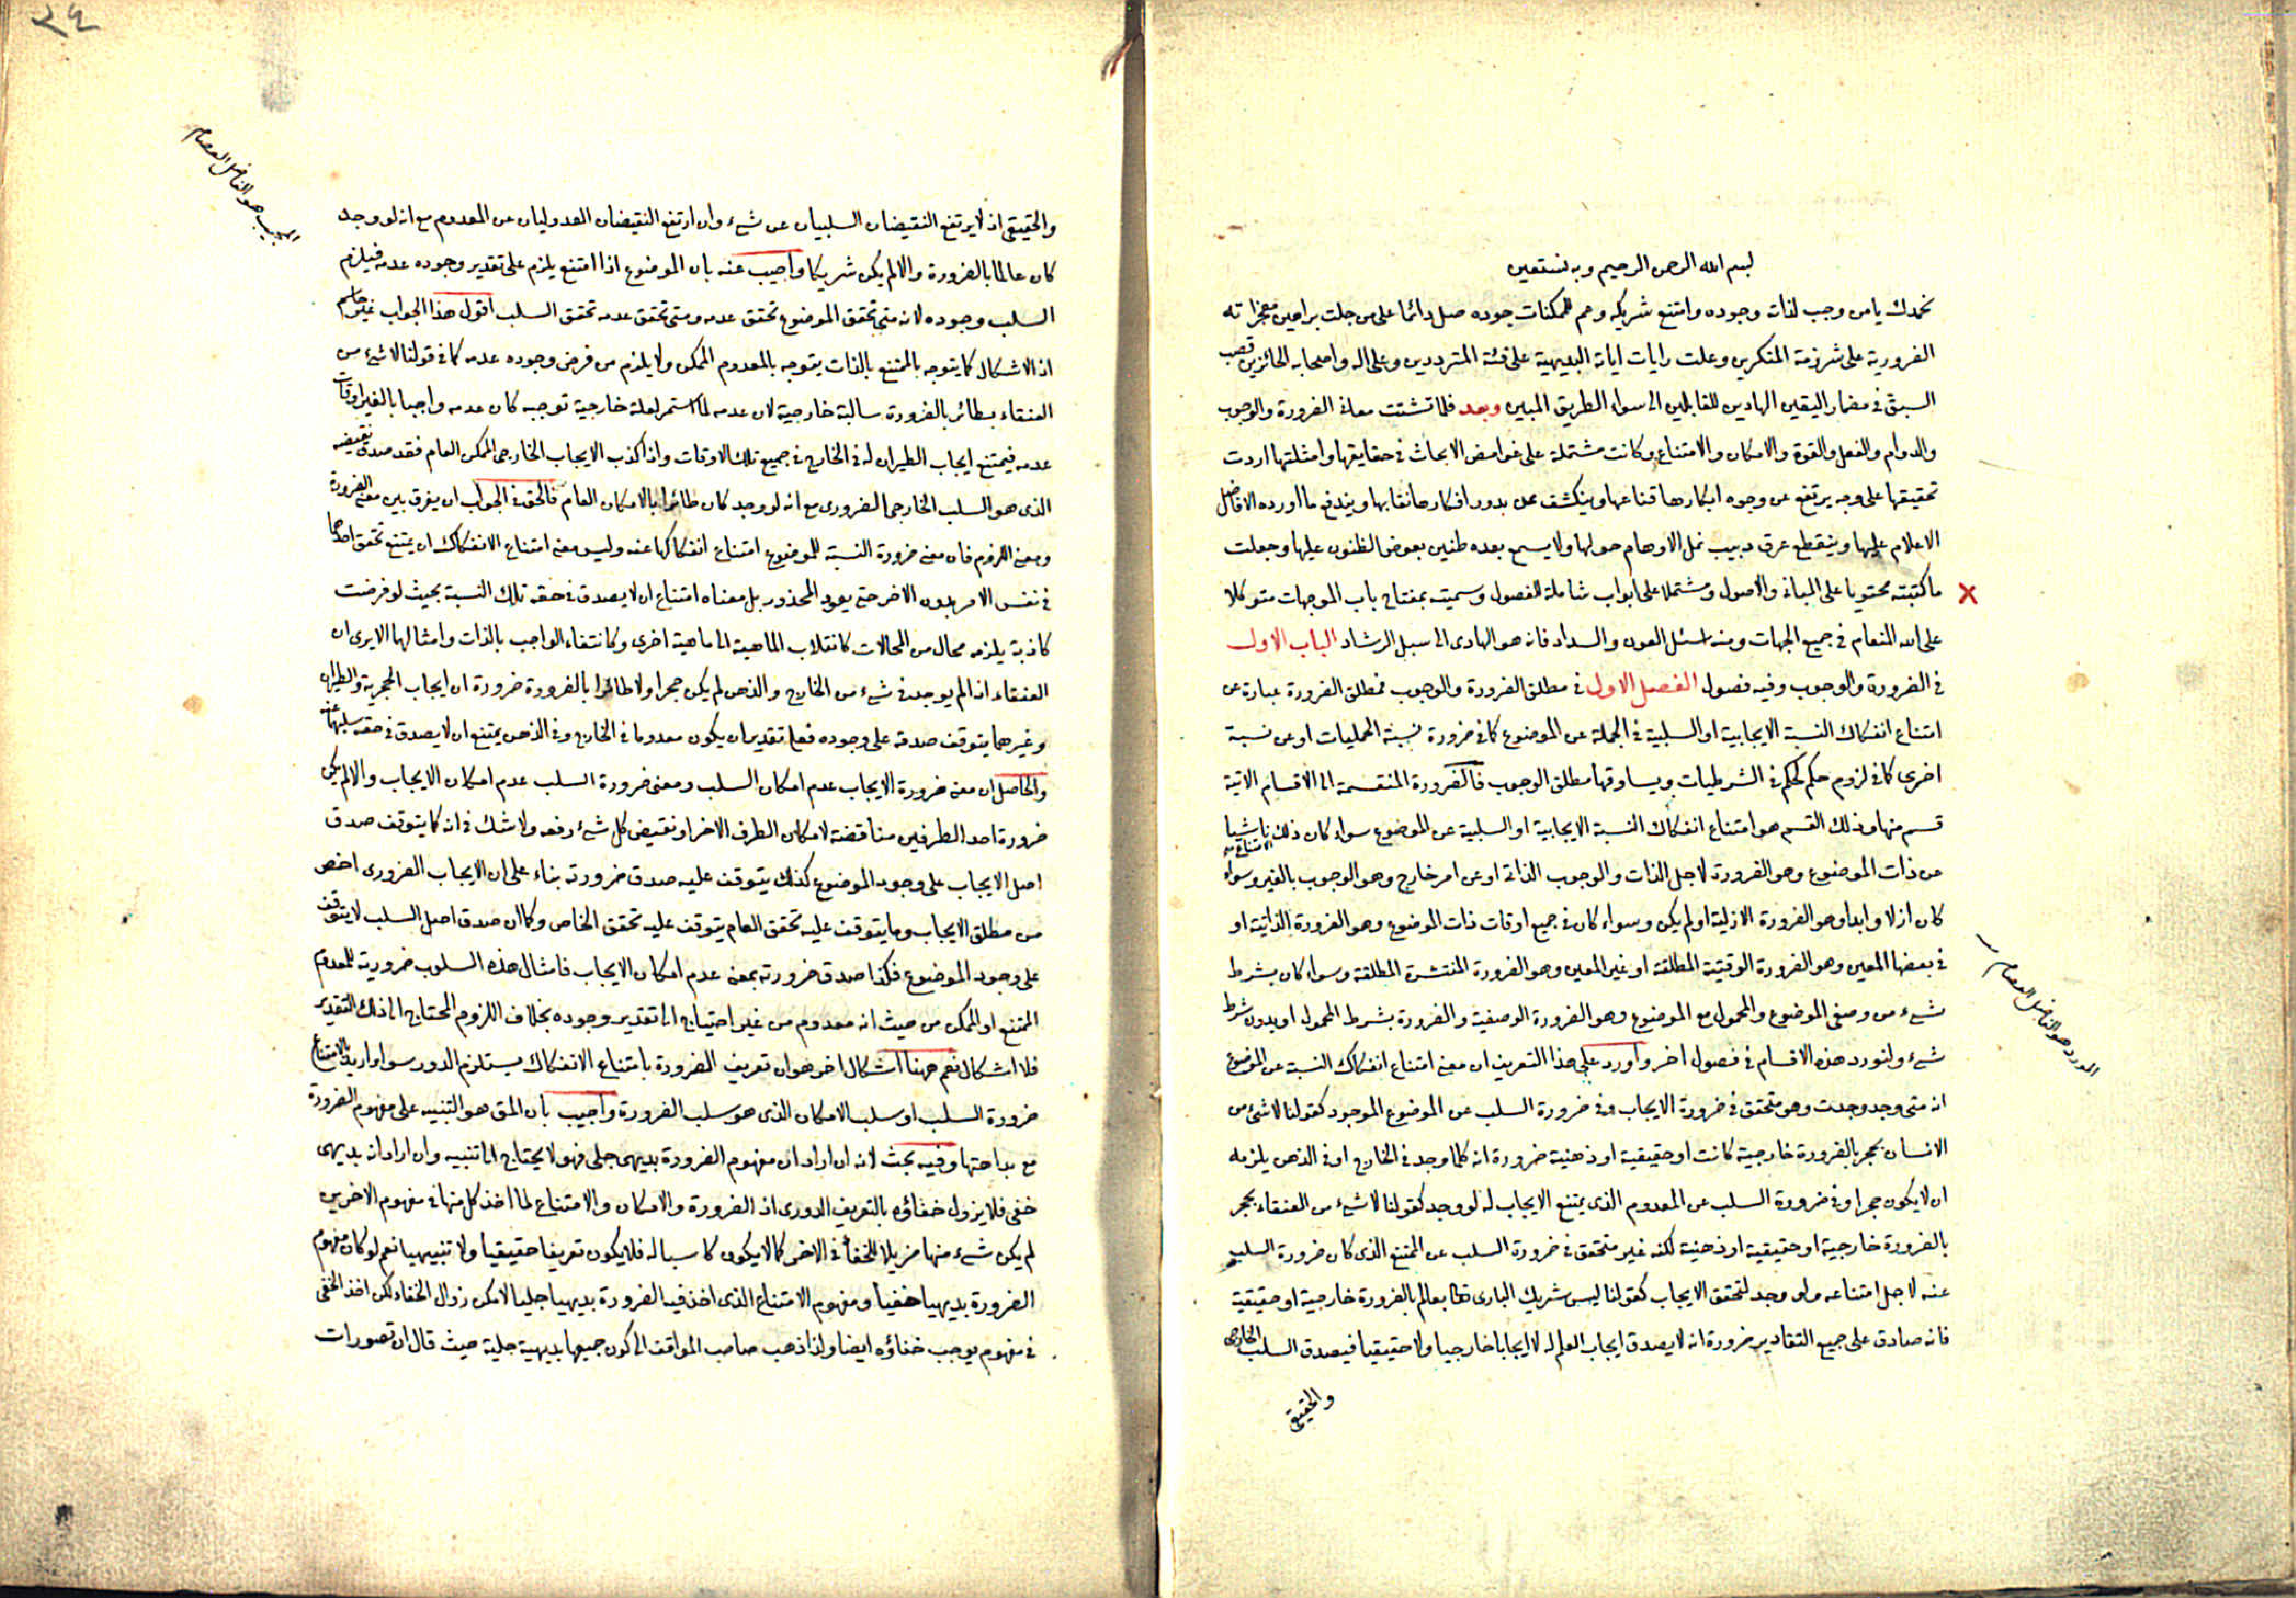 بسم الله الرحمن الرحيم وبه نستعين
نحمدك يا من وجب لذات وجوده وامتنع شريكه وعم للممكنات جوده صل دائما على من جلت براهين معجزاته
الضرورية على شرذمة المنكرين وعلت رايات اياته البديهية على فئة المترددين وعلى اله واصحابه الحائزين قصب
السبق فى مضمار اليقين الهادين للقابلين الى سواء الطريق المبين وبعد فلما تشتت معانى الضرورة والوجوب
والدوام والفعل والقوة والامكان والامتناع وكانت مشتملة على غوامض الابحاث فى حقايقها وامثلتها اردت
تحقيقها على وجه يرتفع عن وجوه ابكارها قناعها وينكشف عن بدور افكارها نقابها ويندفع ما اورده الافاضل
الاعلام عليها وينقطع عرق دبيب نمل الاوهام حولها ولا يسمع بعده طنين بعوض الظنون عليها وجعلت
ما كتبته محتويا على المبانى والاصول ومشتملا على ابواب شاملة للفصول وسميته بمفتاح باب الموجهات متوكلا
على الله المنعام فى جميع الجهات ومنه اسئل العون والسداد فانه هو الهادى الى سبيل الرشاد الباب الاول
فى الضرورة والوجوب وفيه فصول الفصل الاول فى مطلق الضرورة والوجوب فمطلق الضرورة عبارة عن
امتناع انفكاك النسبة الايجابية او السلبية فى الجملة عن الموضوع كما فى ضرورة نسبة الحمليات او عن نسبة
اخرى كما فى لزوم حكم لحكم فى الشرطيات ويساوقها مطلق الوجوب فالضرورة المنقسمة الى الاقسام الاتية
قسم منها وذلك القسم هو امتناع انفكاك النسبة الايجابية او السلبية عن الموضوع سواء كان ذلك الامتناع ناشيا
من ذات الموضوع وهو الضرورة لاجل الذات والوجوب الذاتى او عن امر خارج وهو الوجوب بالغير وسواء
كان ازلا وابدا وهو الضرورة الازلية او لم يكن وسواء كان فى جميع اوقات ذات الموضوع وهو الضرورة الذاتية او
فى بعضها المعين وهو الضرورة الوقتية المطلقة او غير المعين وهو الضرورة المنتشرة المطلقة وسواء كان بشرط
شىء من وصفى الموضوع والمحمول مع الموضوع وهو الضرورة الوصفية والضرورة بشرط المحمول او بدون شرط
شىء ولنورد هذه الاقسام فى فصول اخر واورد على هذا التعريف ان معنى امتناع انفكاك النسبة عن الموضوع
انه متى وجد وجدت وهو متحقق فى ضرورة الايجاب وفى ضرورة السلب عن الموضوع الموجود كقولنا لا شئ من
الانسان بحجر بالضرورة خارجية كانت او حقيقية او ذهنية ضرورة انه كلما وجد فى الخارج او فى الذهن يلزمه
ان لا يكون حجرا وفى ضرورة السلب عن المعدوم الذى يمتنع الايجاب له لو وجد كقولنا لا شىء من العنقاء بحجر
بالضرورة خارجية او حقيقية او ذهنية لكنه غير متحقق فى ضرورة السلب عن الممتنع الذى كان ضرورة السلب
عنه لاجل امتناعه ولو وجد لتحقق الايجاب كقولنا ليس شريك البارى تعا بعالم بالضرورة خارجية او حقيقية
فانه صادق على جميع التقادير ضرورة انه لا يصدق ايجاب العلم له لا ايجابا خارجيا ولا حقيقيا فيصدق السلب الخارجى
والحقيقى
المورد هو الفاضل العصام
٢٤
والحقيقى اذ لا يرتفع النقيضان السلبيان عن شىء وان ارتفع النقيضان العدوليان عن المعدوم مع انه لو وجد
كان عالما بالضرورة والا لم يكن شريكا واجيب عنه بان الموضوع اذا امتنع يلزم على تقدير وجوده عدمه فيلزم
السلب وجوده لانه متى تحقق الموضوع تحقق عدمه ومتى تحقق عدمه تحقق السلب اقول هذا الجواب غير حاسم
اذ الاشكال كما يتوجه بالممتنع بالذات يتوجه بالمعدوم الممكن ولا يلزم من فرض وجوده عدمه كما فى قولنا لا شىء من
العنقاء بطائر بالضرورة سالبة خارجية لان عدمه لما استمر لعلة خارجية توجبه كان عدمه واجبا بالغير اوقات
عدمه فيمتنع ايجاب الطيران له فى الخارج فى جميع تلك الاوقات واذا كذب الايجاب الخارجى الممكن العام فقد صدق نقيضه
الذى هو السلب الخارجى الضرورى مع انه لو وجد كان طائرا بالامكان العام فالحق فى الجواب ان يفرق بين معنى الضرورة
ومعنى اللزوم فان معنى ضرورة النسبة للموضوع امتناع انفكاكها عنه وليس معنى امتناع الانفكاك ان يمتنع تحقق احدهما
فى نفس الامر بدون الاخر حتى يعود المحذور بل معناه امتناع ان لا يصدق فى حقه تلك النسبة بحيث لو فرضت
كاذبة يلزمه محال من المحالات كانقلاب الماهية الى ماهية اخرى وكانتفاء الواجب بالذات وامثالها الا يرى ان
العنقاء اذ لم يوجد فى شىء من الخارج والذهن لم يكن حجرا ولا طائرا بالضرورة ضرورة ان ايجاب الحجرية والطيران
وغيرهما يتوقف صدقه على وجوده فعلى تقدير ان يكون معدوما فى الخارج وفى الذهن يمتنع ان لا يصدق فى حقه سلبهما عنه
والحاصل ان معنى ضرورة الايجاب عدم امكان السلب ومعنى ضرورة السلب عدم امكان الايجاب والا لم يكن
ضرورة احد الطرفين مناقضة لامكان الطرف الاخر اذ نقيض كل شىء رفعه ولا شك فى انه كما يتوقف صدق
اصل الايجاب على وجود الموضوع كذلك يتوقف عليه صدق ضرورته بناء على ان الايجاب الضرورى اخص
من مطلق الايجاب وما يتوقف عليه تحقق العام يتوقف عليه تحقق الخاص وكما ان صدق اصل السلب لا يتوقف
على وجود الموضوع فكذا صدق ضرورته بمعنى عدم امكان الايجاب فامثال هذه السلوب ضرورية للمعدوم
الممتنع او الممكن من حيث انه معدوم من غير احتياج الى تقدير وجوده بخلاف اللزوم المحتاج الى ذلك التقدير
فلا اشكال نعم ههنا اشكال اخر هو ان تعريف الضرورة بامتناع الانفكاك يستلزم الدور سواء اريد بالامتناع
ضرورة السلب او سلب الامكان الذى هو سلب الضرورة واجيب بان المق هو التنبيه على مفهوم الضرورة
مع بداهتها وفيه بحث لانه ان اراد ان مفهوم الضرورة بديهى جلى فهو لا يحتاج الى تنبيه وان اراد انه بديهى
خفى فلا يزول خفاؤه بالتعريف الدورى اذ الضرورة والامكان والامتناع لما اخذ كل منها فى مفهوم الاخرين
لم يكن شىء منها مزيلا للخفأ فى الاخر كما لا يكون كاسبا له فلا يكون تعريفا حقيقيا ولا تنبيهيا نعم لو كان مفهوم
الضرورة بديهيا خفيا ومفهوم الامتناع الذى اخذ فيه الضرورة بديهيا جليا لامكن زوال الخفاء لكن اخذ الخفى
فى مفهوم يوجب خفاؤه ايضا ولذا ذهب صاحب المواقف الى كون جميعها بديهية جلية حيث قال ان تصورات
المجيب هو الفاضل العصام